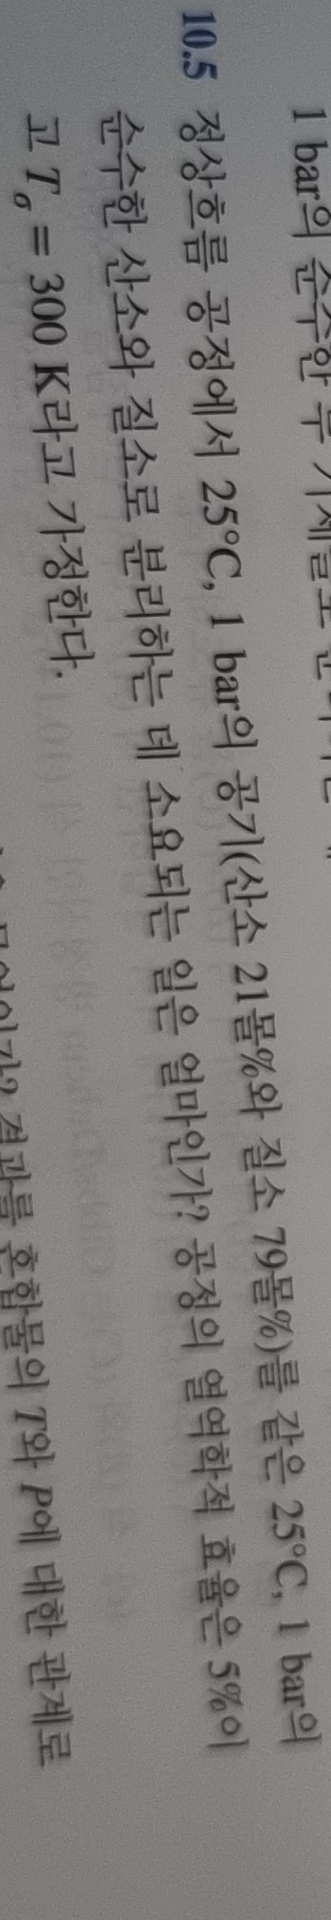 1 bar의 순수한 두
10.5 정상흐름 공정에서 25°C, 1 bar의 공기(산소 21몰%와 질소 79몰%)를 같은 25°C, 1 bar의
순수한 산소와 질소로 분리하는 데 소요되는 일은 얼마인가? 공정의 열역학적 효율은 5%이
고 Tσ = 300 K라고 가정한다.
무엇인가? 결과를 혼합물의 T와 P에 대한 관계로